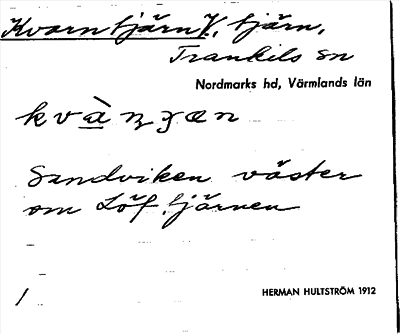 Kvarntjärn, tjärn,
Trankils sn
Nordmarks hd, Värmlands län
Sandviken väster
om Löftjärnen
HERMAN HULTSTRÖM 1912